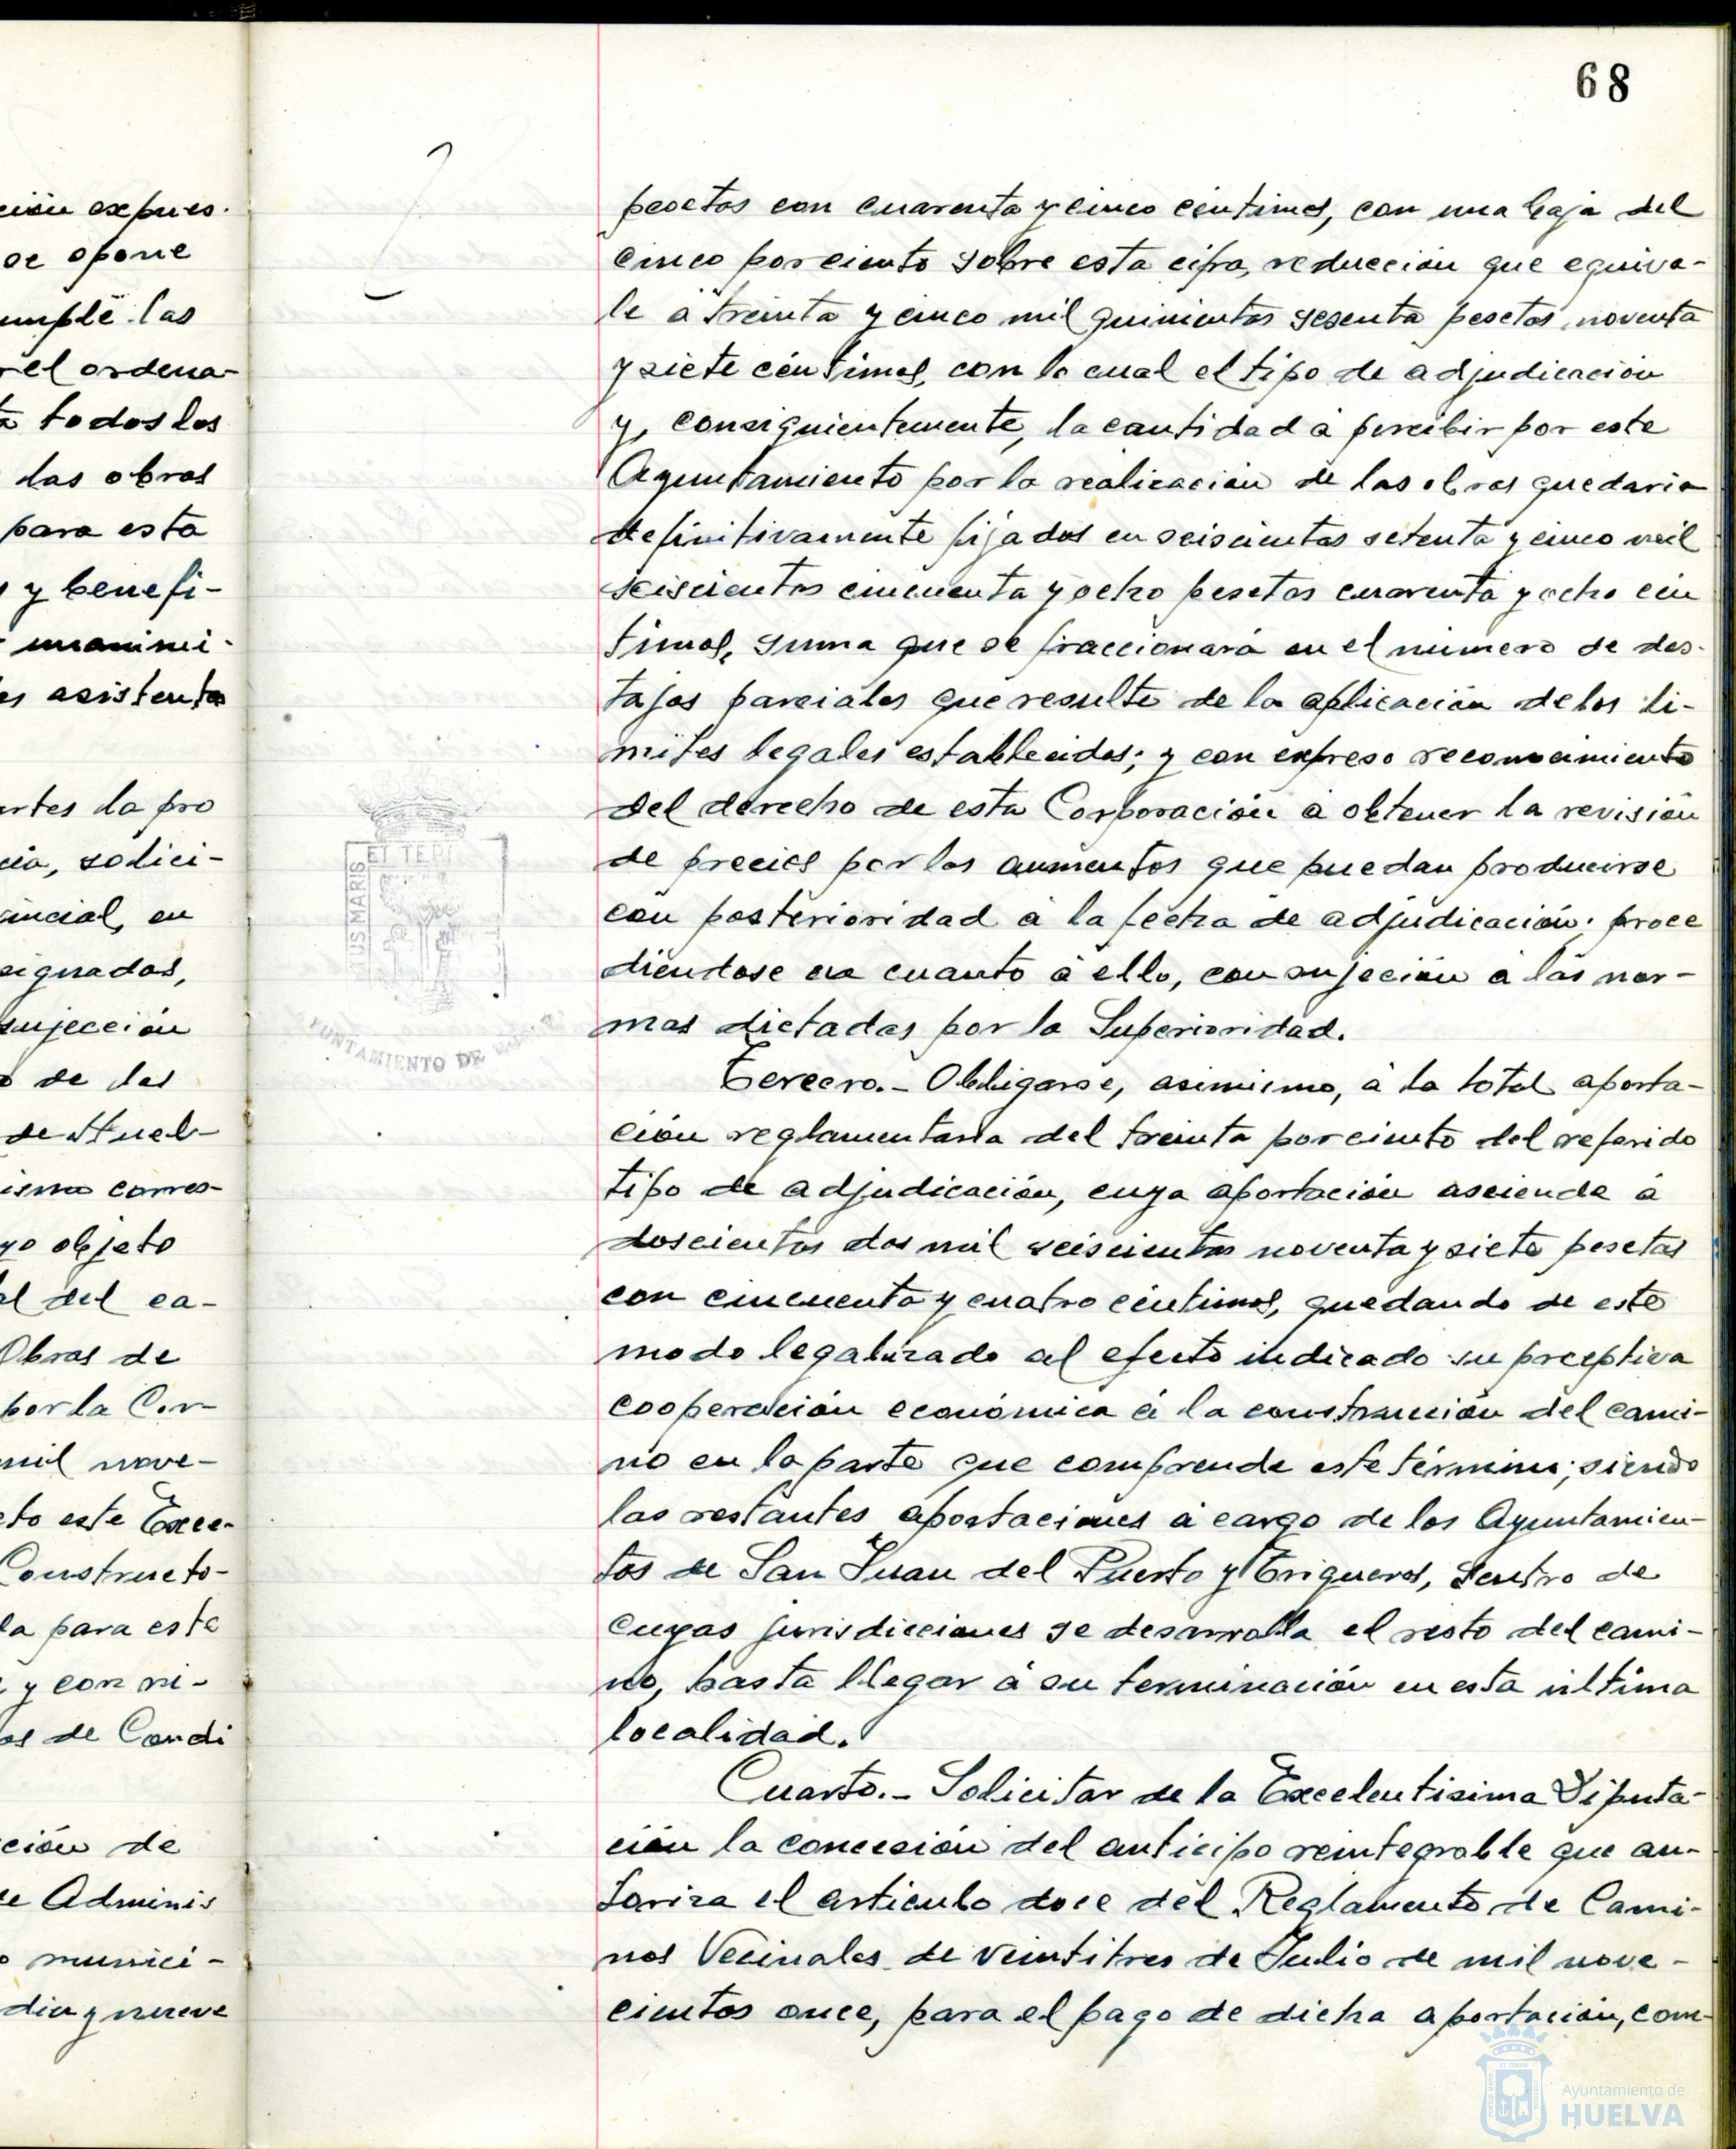 68
ción expues-
se opone
umple las
el ordena-
todos los
las obras
para esta
y benefi-
unanimi-
es asistentes
rtes la pro
cia, solici-
incial, en
signadas,
sujección
de las
de Huel-
ismo corres-
yo objeto
al del ca-
Obras de
por la Cor-
mil nove-
to este Exce-
Constructo-
la para este
y con ri-
os de Condi
ción de
de Adminis
o munici-
diez y nueve
pesetas con cuarenta y cinco céntimos, con una baja del
cinco por ciento sobre esta cifra, reducción que equiva-
le á treinta y cinco mil quinientas sesenta pesetas, noventa
y siete céntimos, con lo cual el tipo de adjudicación
y, consiguientemente, la cantidad á percibir por este
Ayuntamiento por la realización de las obras quedaria
definitivamente fijados en seiscientas setenta y cinco mil
seiscientas cincuenta y ocho pesetas cuarenta y ocho cén
timos, suma que se fraccionará en el número de des-
tajos parciales que resulte de la aplicación de los lí-
mites legales establecidos; y con expreso reconocimiento
del derecho de esta Corporación á obtener la revisión
de precios por los aumentos que puedan producirse
con posterioridad á la fecha de adjudicación; proce
diéndose en cuanto á ello, con sujeción á las nor-
mas dictadas por la Superioridad.
Tercero.- Obligarse, asimismo, á la total aporta-
ción reglamentaria del treinta por ciento del referido
tipo de adjudicación, cuya aportación asciende á
doscientas dos mil seiscientas noventa y siete pesetas
con cincuenta y cuatro céntimos, quedando de este
modo legalizado al efecto indicado su preceptiva
cooperación económica á la construcción del cami-
no en la parte que comprende este término; siendo
las restantes aportaciones á cargo de los Ayuntamien-
tos de San Juan del Puerto y Trigueros, dentro de
cuyas jurisdicciones se desarrolla el resto del cami-
no, hasta llegar á su terminación en esta última
localidad.
Cuarto.- Solicitar de la Excelentisima Diputa-
ción la concesión del anticipo reintegrable que au-
toriza el articulo doce del Reglamento de Cami-
nos Vecinales de veintitres de Julio de mil nove-
cientos once, para el pago de dicha aportación, com-
ET TERR
US MARIS
AYUNTAMIENTO DE
Ayuntamiento de
HUELVA